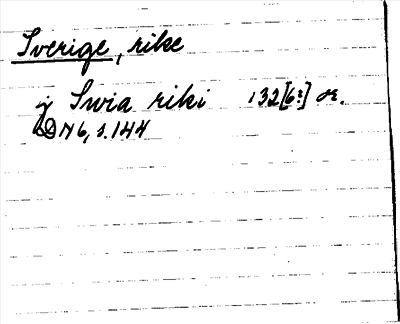 Sverige, rike
j Swia riki 132[6?] or.
DN 6, s. 144